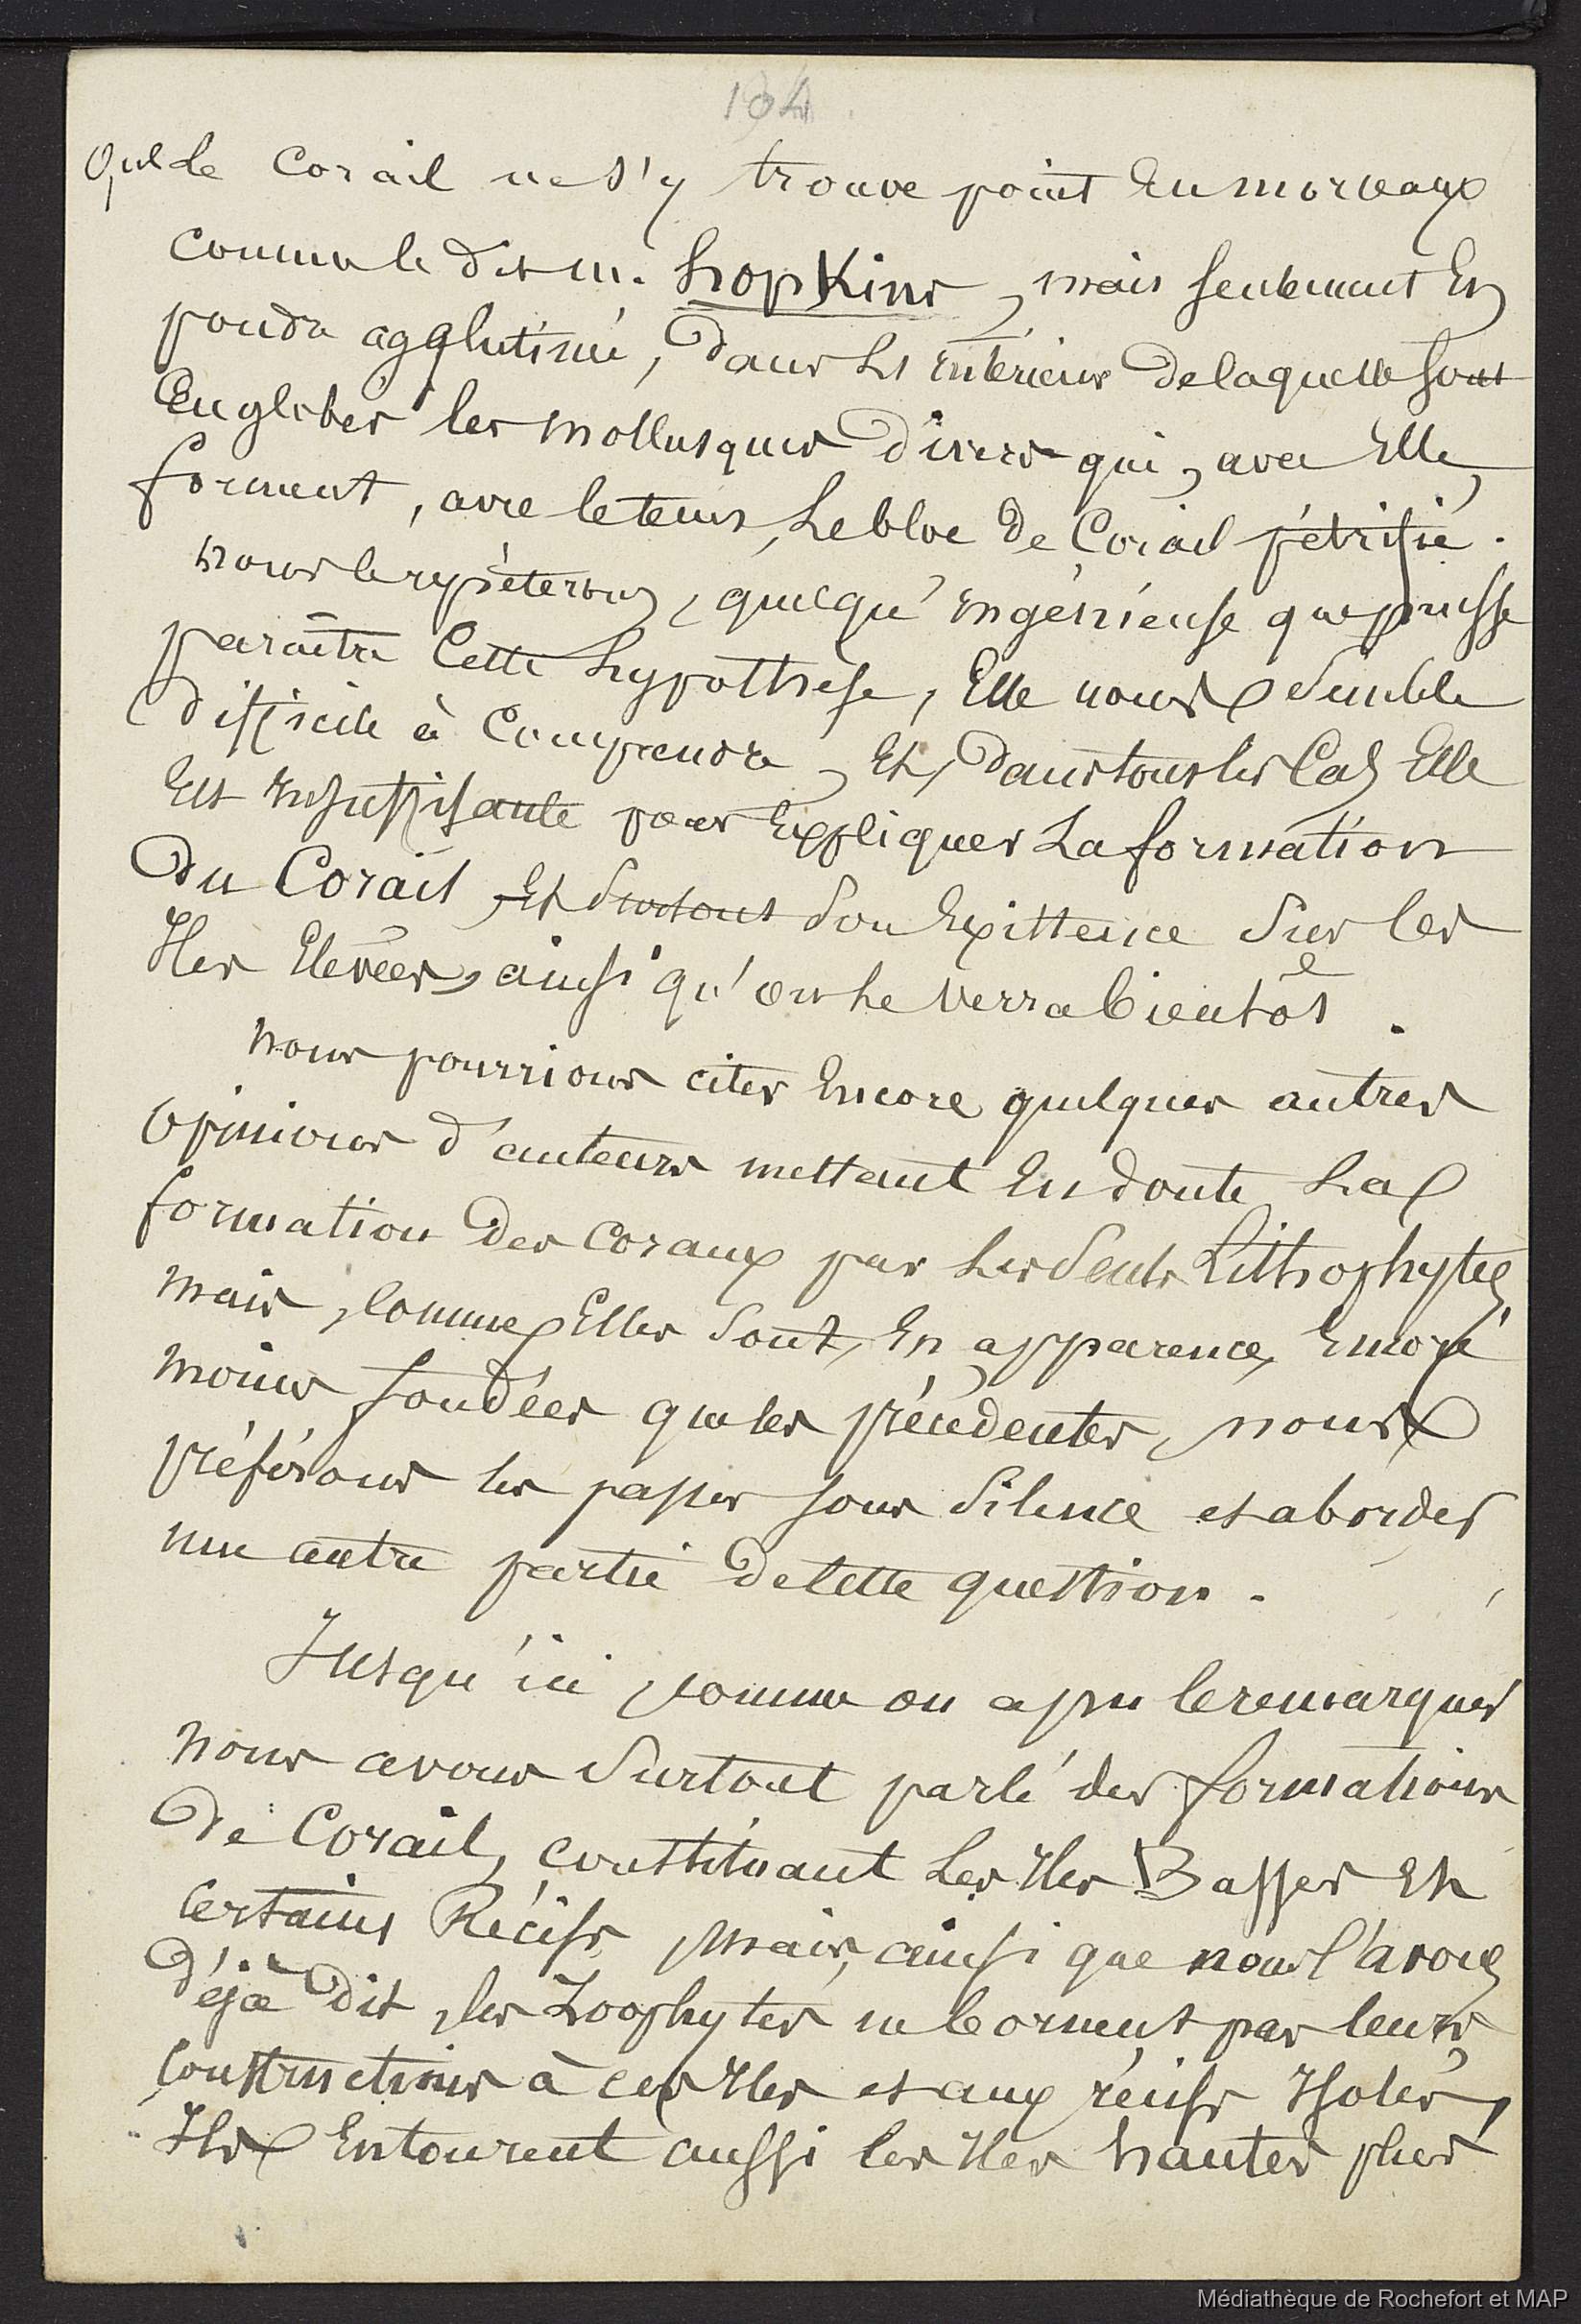 104
que le Corail ne s'y trouve point En morceaux
comme le dit m. hopkins, mais seulement En
poudre agglutinée, Dans les intérieur De laquelle sont
Englobés les mollusques Divers qui, avec Elle,
forment, avec le tems, Le bloc De Corail pétrifié.
nous le répéterons, quelqu'ingénieuse que puisse
paraître Cette hypothèse, Elle nous Semble
Difficile à Comprendre, Et, Dans tous les Cas Elle
Est insuffisante pour Expliquer La formation
Du Corail, Et Surtout Son Existence Sur les
Iles Elevées, ainsi qu'on le verra bientôt.
nous pourrions citer Encore quelques autres
Opinions d'auteurs mettant En doute La
formation Des Coraux par Les Seuls Lithophytes,
mais, Comme Elles Sont, En apparence, Encore
moins fondées que les précédentes, nous
préférons les passer sous Silence et aborder
une autre partie De Cette question.
Jusqu'ici, comme on a pu le remarquer
nous avons Surtout parlé des formations
De Corail, constituant Les Iles Basses Et
Certains Récifs, mais, ainsi que nous l'avons
Déjà Dit, les Zoophytes ne bornent pas leurs
Constructions à ces Iles et aux récifs Isolés,
Ils Entourent aussi les Iles hautes plus
Médiathèque de Rochefort et MAP